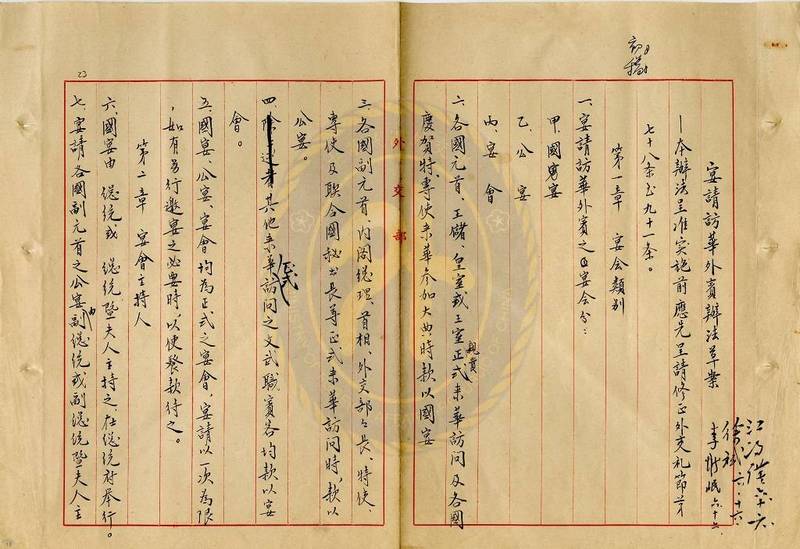 初稿
宴請訪華外賓辦法草案
—本辦法呈准实施前應先呈請修正外交礼節第
七十八条至九十一条。
第一章 宴会類別
一、宴請訪華外賓之正宴会分：
甲、國宴
乙、公宴
丙、宴會
二、各國元首、王儲、皇室或王室親貴正式來華訪問及各國
慶賀特專使來華參加大典時款以國宴
三、各國副元首、內閣總理、首相、外交部々長、特使、
專使及聯合國秘书長等正式來華訪問時，款以
公宴。
四、其他正式來華訪問之文武職賓客均款以宴
會。
五、國宴、公宴、宴會均為正式之宴會，宴請以一次為限
，如有另行邀宴之必要時，以便餐款待之。
第二章 宴會主持人
六、國宴由 總統或 總統暨夫人主持之，在總統府举行。
七、宴請各國副元首之公宴由副總統或副總統暨夫人主
外交部
23